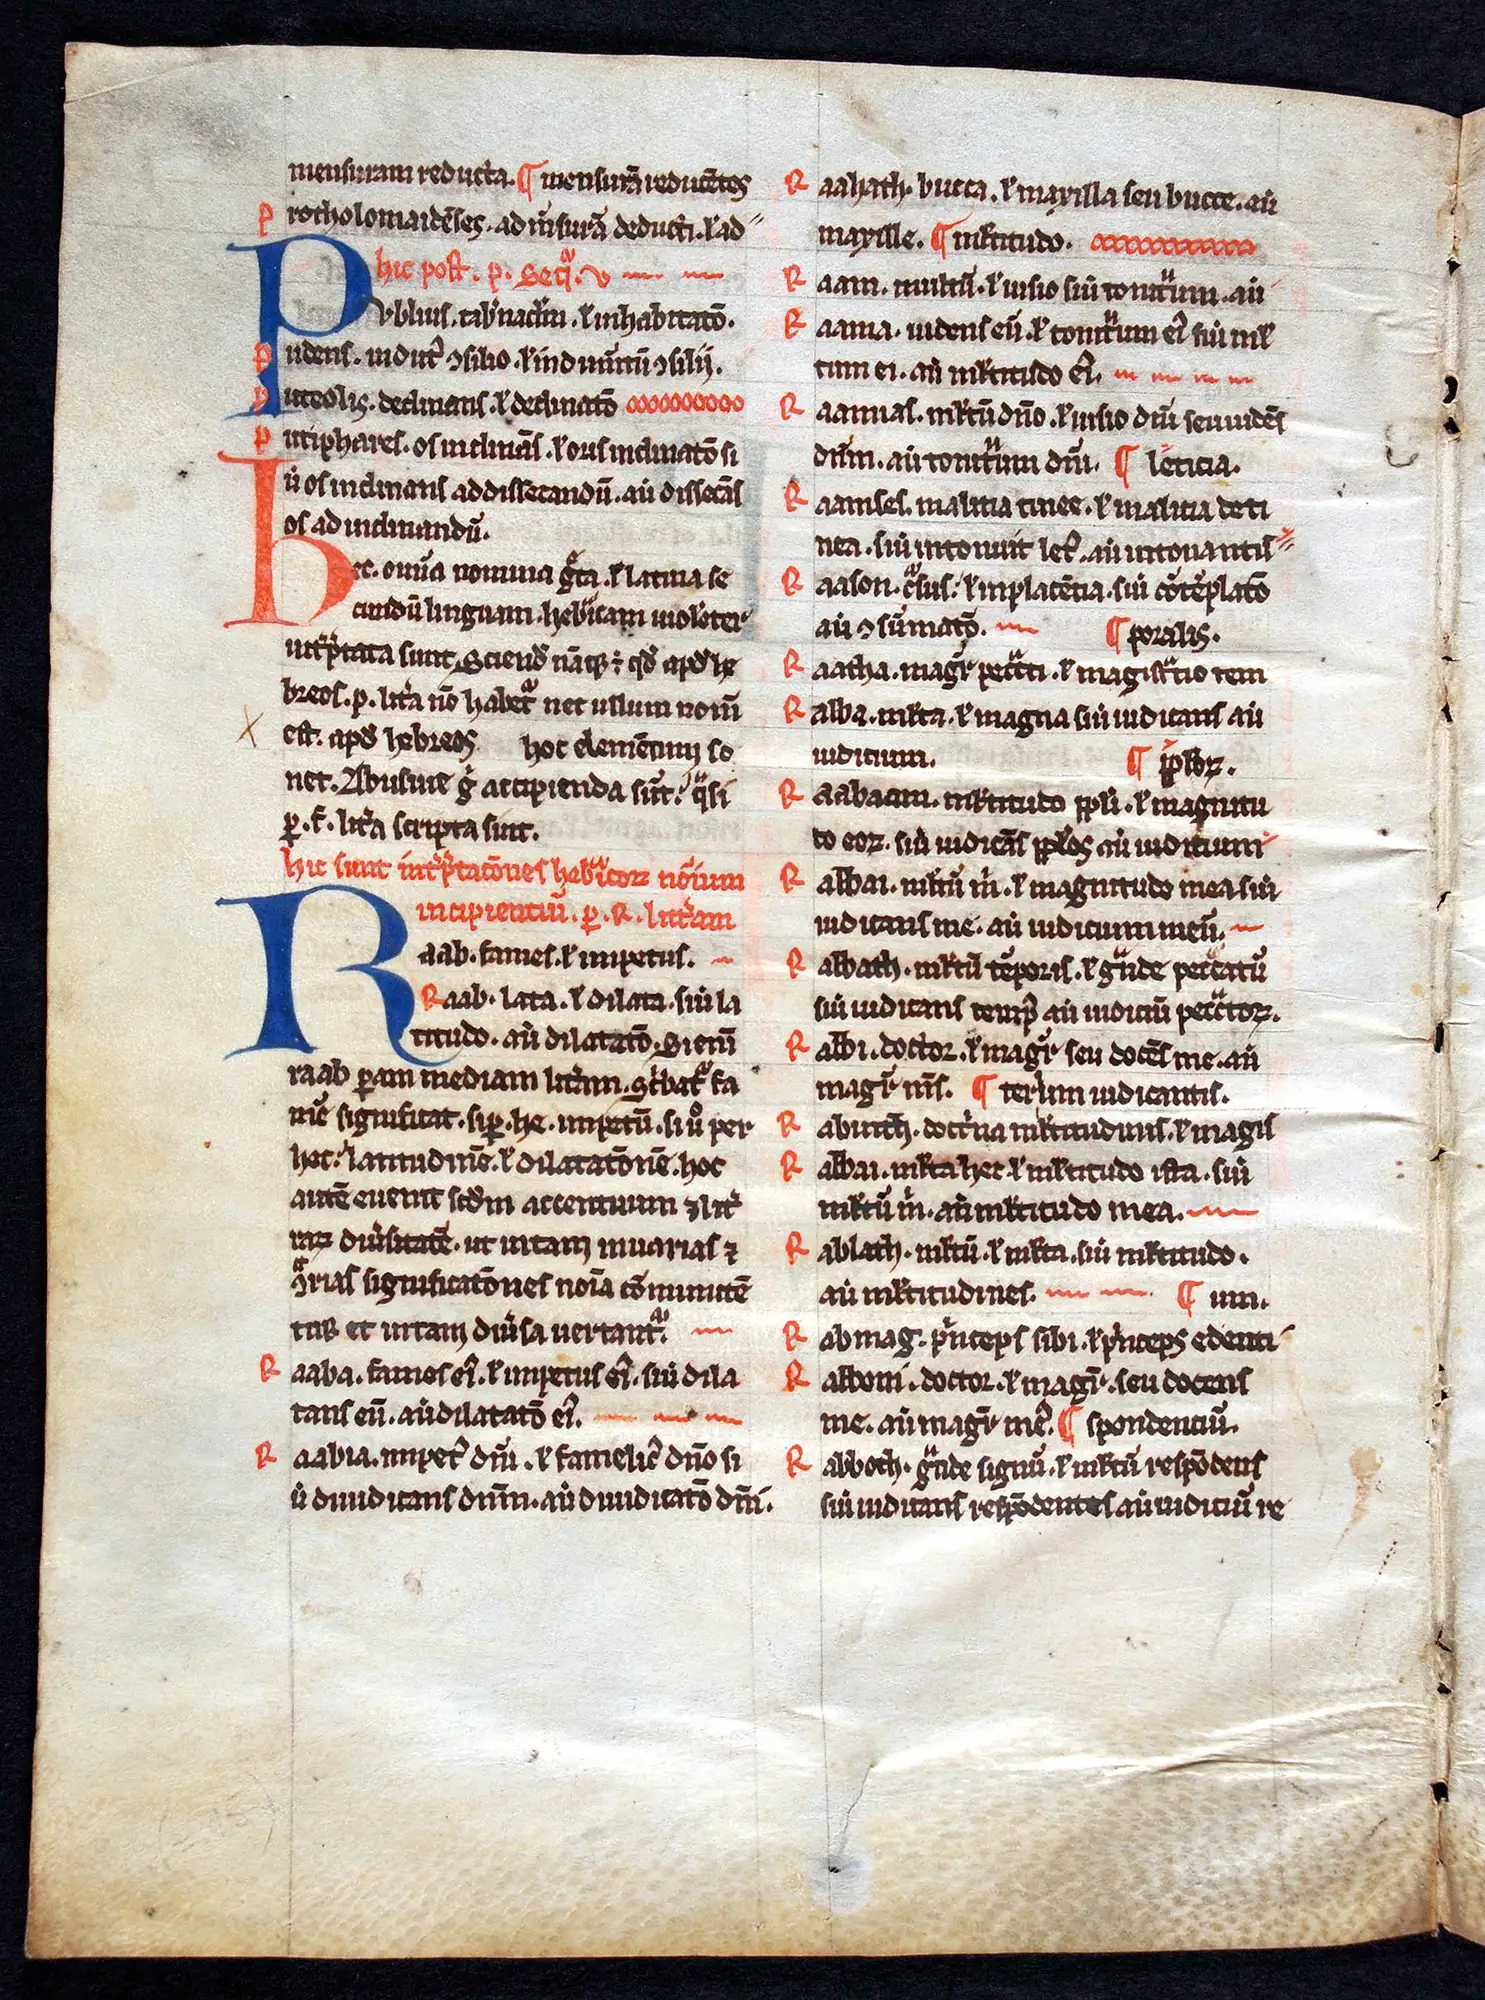 mensuram reducta. ¶ mensurā reducētes
Protholomaidēses. ad m̄surā deducti. ł ad
hic post. p. Seqͣ. v
Publius. tab̾nac̄lm. ł inhabitatō.
Pudens. induit̾ ɔsilio. ł indumtū ɔsilij.
Puteolis. declinans. ł declinatō
Putiphares. os inclinās. ł orus inclinatō si
ū os inclinans ad dissecandū. aū dissecās
os ad inclinandū.
Hec. omīa nomina gͣca. ł latina se
cundū linguam. heb̾icam uiolēter
int̾p̄tata sunt. Sciend̄ nāq; ÷ qd̄ apd̄ he
breos. p. lit̾a nō habet̾ nec ullum nom̄
est. apd̄ hebreos hoc elemētum so
net. Abusiue g̾ accipienda sūt. qͣsi
ꝑ. f. lit̾a scripta sint.
hic sunt int̾p̄tacōnes heb̾icoꝝ nōium
incipientiū. ꝑ. R. litt̾am
Raab. fames. ł impetus.
Raab. lata. ł dilata. siū la
titudo. aū dilatatō. Si enī
raab ꝑ am mediam lit̾am. sc̾bat̾ fa
mē significat. si ꝑ. he. impetū. si ů per
hec. latitudinē. ł dilatatōnē. hoc
autē euenit scdm accentuum ⁊ lit̾
raꝝ diu̾sitatē. ut in tam inuarias ⁊
ↄͣrias significatōnes noīa cōmutatē
tur et in tam diu̾sa uertant̾.
Raaba. fames ei̾. ł impetus ei̾. siū dila
tans eū. aū dilatatō ei̾.
Raabia. impet̾ dn̄i. ł famelic̾ dn̄o si
ū diiudicans dn̄m. aū diiudicatō dn̄i.
Raahath. bucca. ł maxilla seu bucce. aū
maxille. ¶ ml̄titudo.
Raam. multū. ł uisio siū tonitͣum. aū
Raama. uidens eū. ł tonitͣum ei̾ siū ml̄
tum ei. aū ml̄titudo ei̾.
Raamas. ml̄tū dn̄o. ł uisio dn̄i seu uidēs
dn̄m. aū tonitͣum dn̄i. ¶ leticia.
Raamses. malicia tinee. ł malicia de ti
nea. siū intonuit let̾. aū intonantis
Raason. cͣsus. ł inplacētia. siū cōtēplatō
aū ɔsūmatō. ¶ poralis.
Raatha. magr̄ pecc̾ti. ł magist̾tio tem
Raba. ml̄ta. ł magna siū iudicans aū
iudicium. ¶ ip̄soꝝ.
Rabaam. ml̄titudo pp̄li. ł magnitu
do eoꝝ. siū iudicās pp̄los aū iudicium
Rabbai. ml̄tū m̄. ł magnitudo mea siū
iudicans me. aū iudicium meū.
Rabbath. ml̄tū tēporis. ł gͣnde peccatū
siū iudicans temp̾ aū iudiciū peccatoꝝ.
Rabbi. doctor. ł magr̄ seu docēs me. aū
magr̄ m̄s. ¶ teriūm iudicantis.
Rabinith. doct̾na ml̄titudinis. ł magis
Rabbai. ml̄ta hec ł ml̄titudo ista. siū
ml̄tū m̄. aū ml̄titudo mea.
Rablath. ml̄tū. ł ml̄ta. siū ml̄titudo.
aū ml̄titudines. ¶ um.
Rabmag. p̾nceps sibi. ł p̾nceps edenti
Rabboni. doctor. ł magr̄. seu docens
me. aū magr̄ me̾. ¶ spondenciū.
Rabboth. gͣnde signū. ł ml̄tū respōdens
siū iudicans respōdentes aū iudiciū re